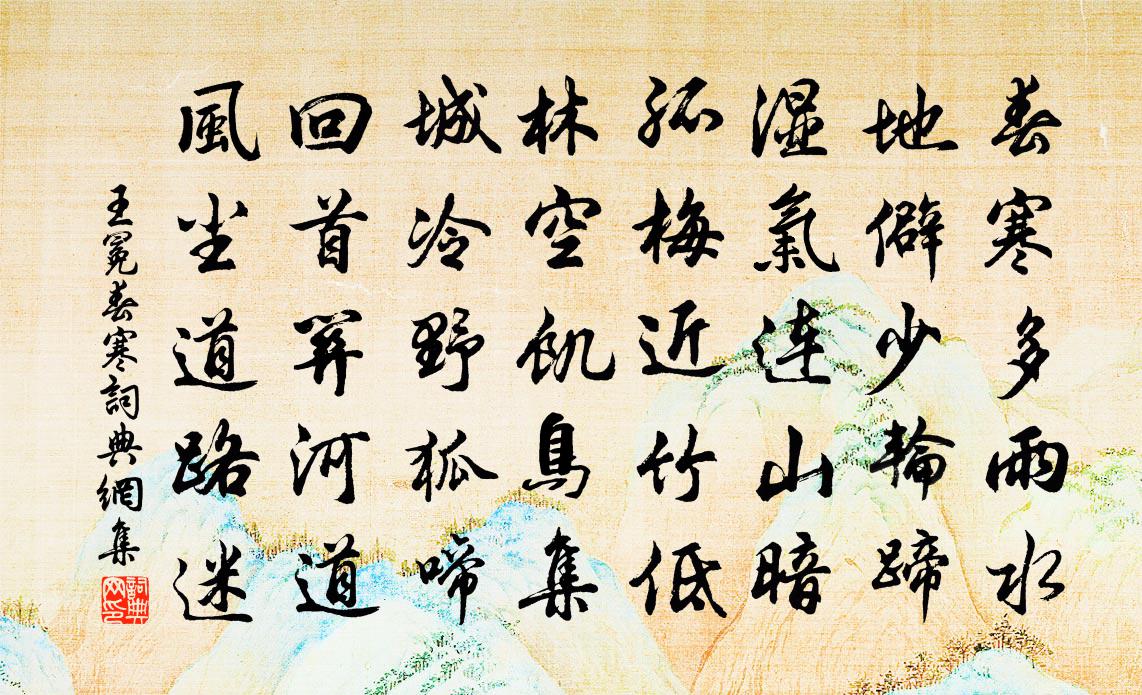 春寒多雨水
地僻少輪蹄
湿氣連山暗
孤梅近竹低
林空飢鳥集
城冷野狐啼
回首開河道
風尘道路迷
王冕春寒詞典網集
詞典网印